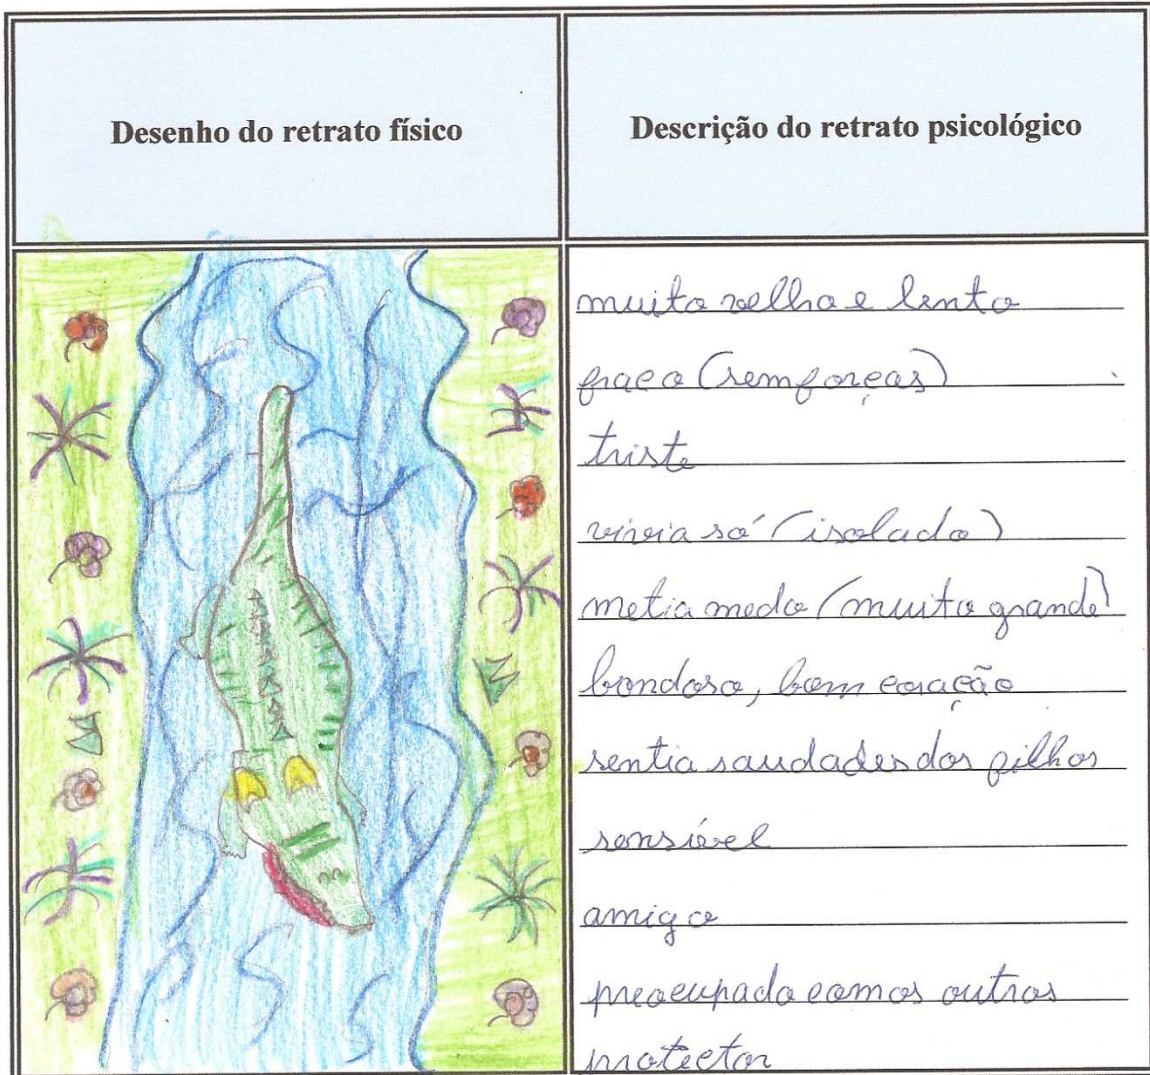 Desenho do retrato físico
Descrição do retrato psicológico
muito velho e lento
fraco (sem forças)
triste
vivia só (isolado)
metia medo (muito grande)
bondoso, bom coração
sentia saudades dos filhos
sensível
amigo
preocupado com os outros
protector